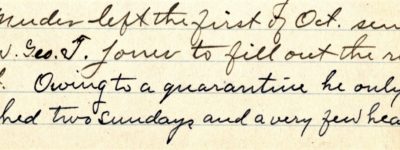 left the first of Oct. sen
v. Geo. T. Jones to fill out the r
. Owing to a quarantine he only
hed two sundays and a very few hea